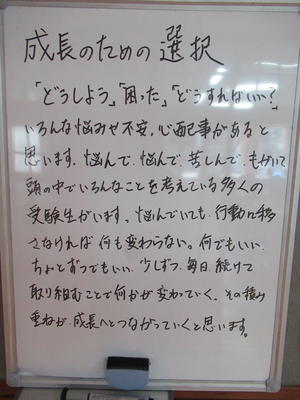 成長のための選択
「どうしよう」「困った」「どうすればいい?」
いろんな悩みや不安、心配事があると
思います。悩んで、悩んで、苦しんで、もがいて
頭の中でいろんなことを考えている多くの
受験生がいます。悩んでいても、行動に移
さなければ 何も変わらない。何でもいい、
ちょっとずつでもいい、少しずつ、毎日、続けて
取り組むことで何かが変わっていく。その積み
重ねが、成長へとつながっていくと思います。